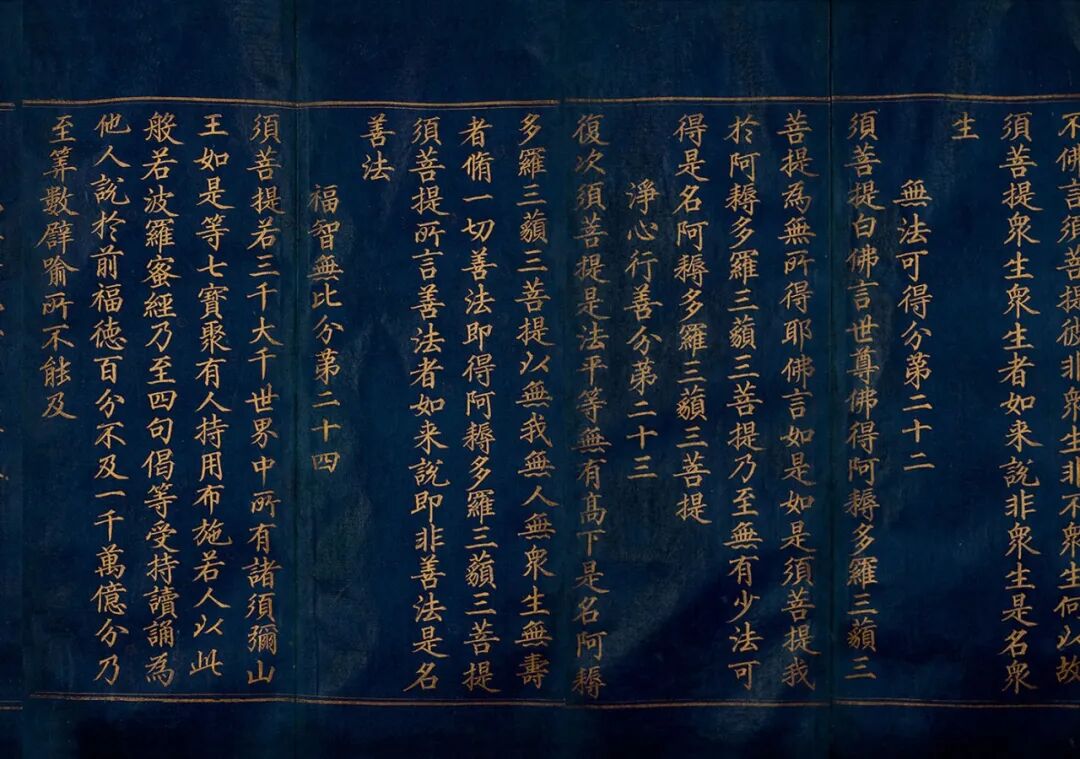 不佛言須菩提彼非衆生非不衆生何以故
須菩提衆生衆生者如来說非衆生是名衆
生
無法可得分第二十二
須菩提白佛言世尊佛得阿耨多羅三藐三
菩提為無所得耶佛言如是如是須菩提我
於阿耨多羅三藐三菩提乃至無有少法可
得是名阿耨多羅三藐三菩提
淨心行善分第二十三
復次須菩提是法平等無有髙下是名阿耨
多羅三藐三菩提以無我無人無衆生無壽
者脩一切善法即得阿耨多羅三藐三菩提
須菩提所言善法者如来說即非善法是名
善法
福智無比分第二十四
須菩提若三千大千世界中所有諸須彌山
王如是等七寳聚有人持用布施若人以此
般若波羅蜜經乃至四句偈等受持讀誦為
他人說於前福徳百分不及一千萬億分乃
至筭數譬喻所不能及